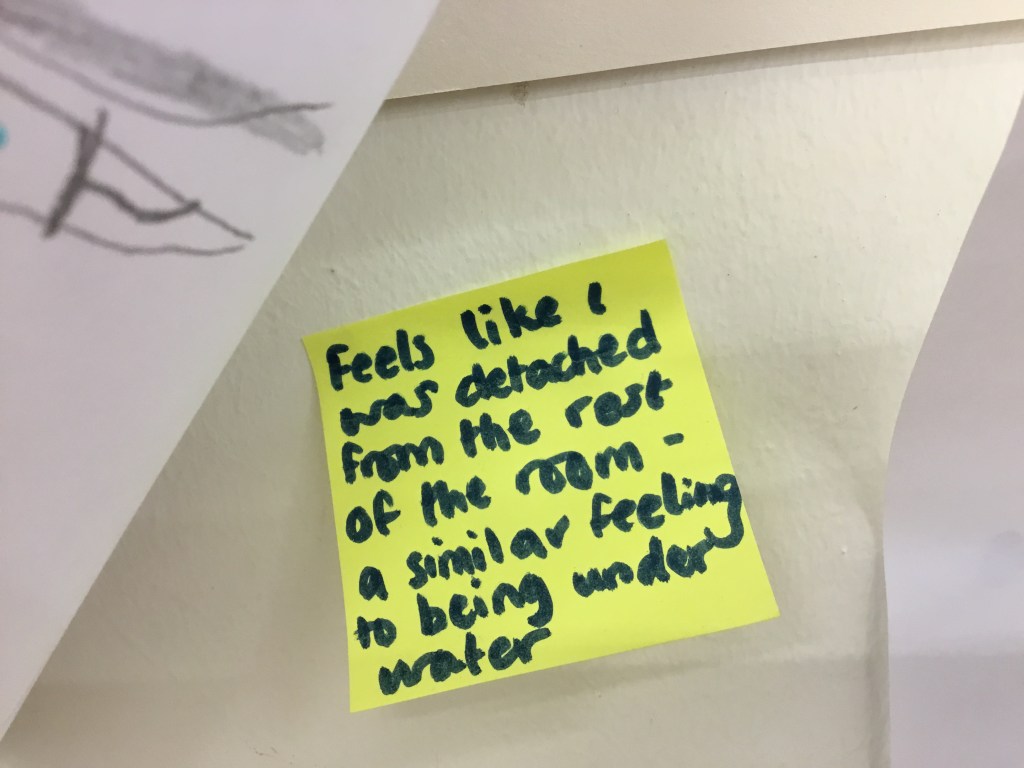 Feels like I
was detached
from the rest
of the room -
a similar feeling
to being under
water